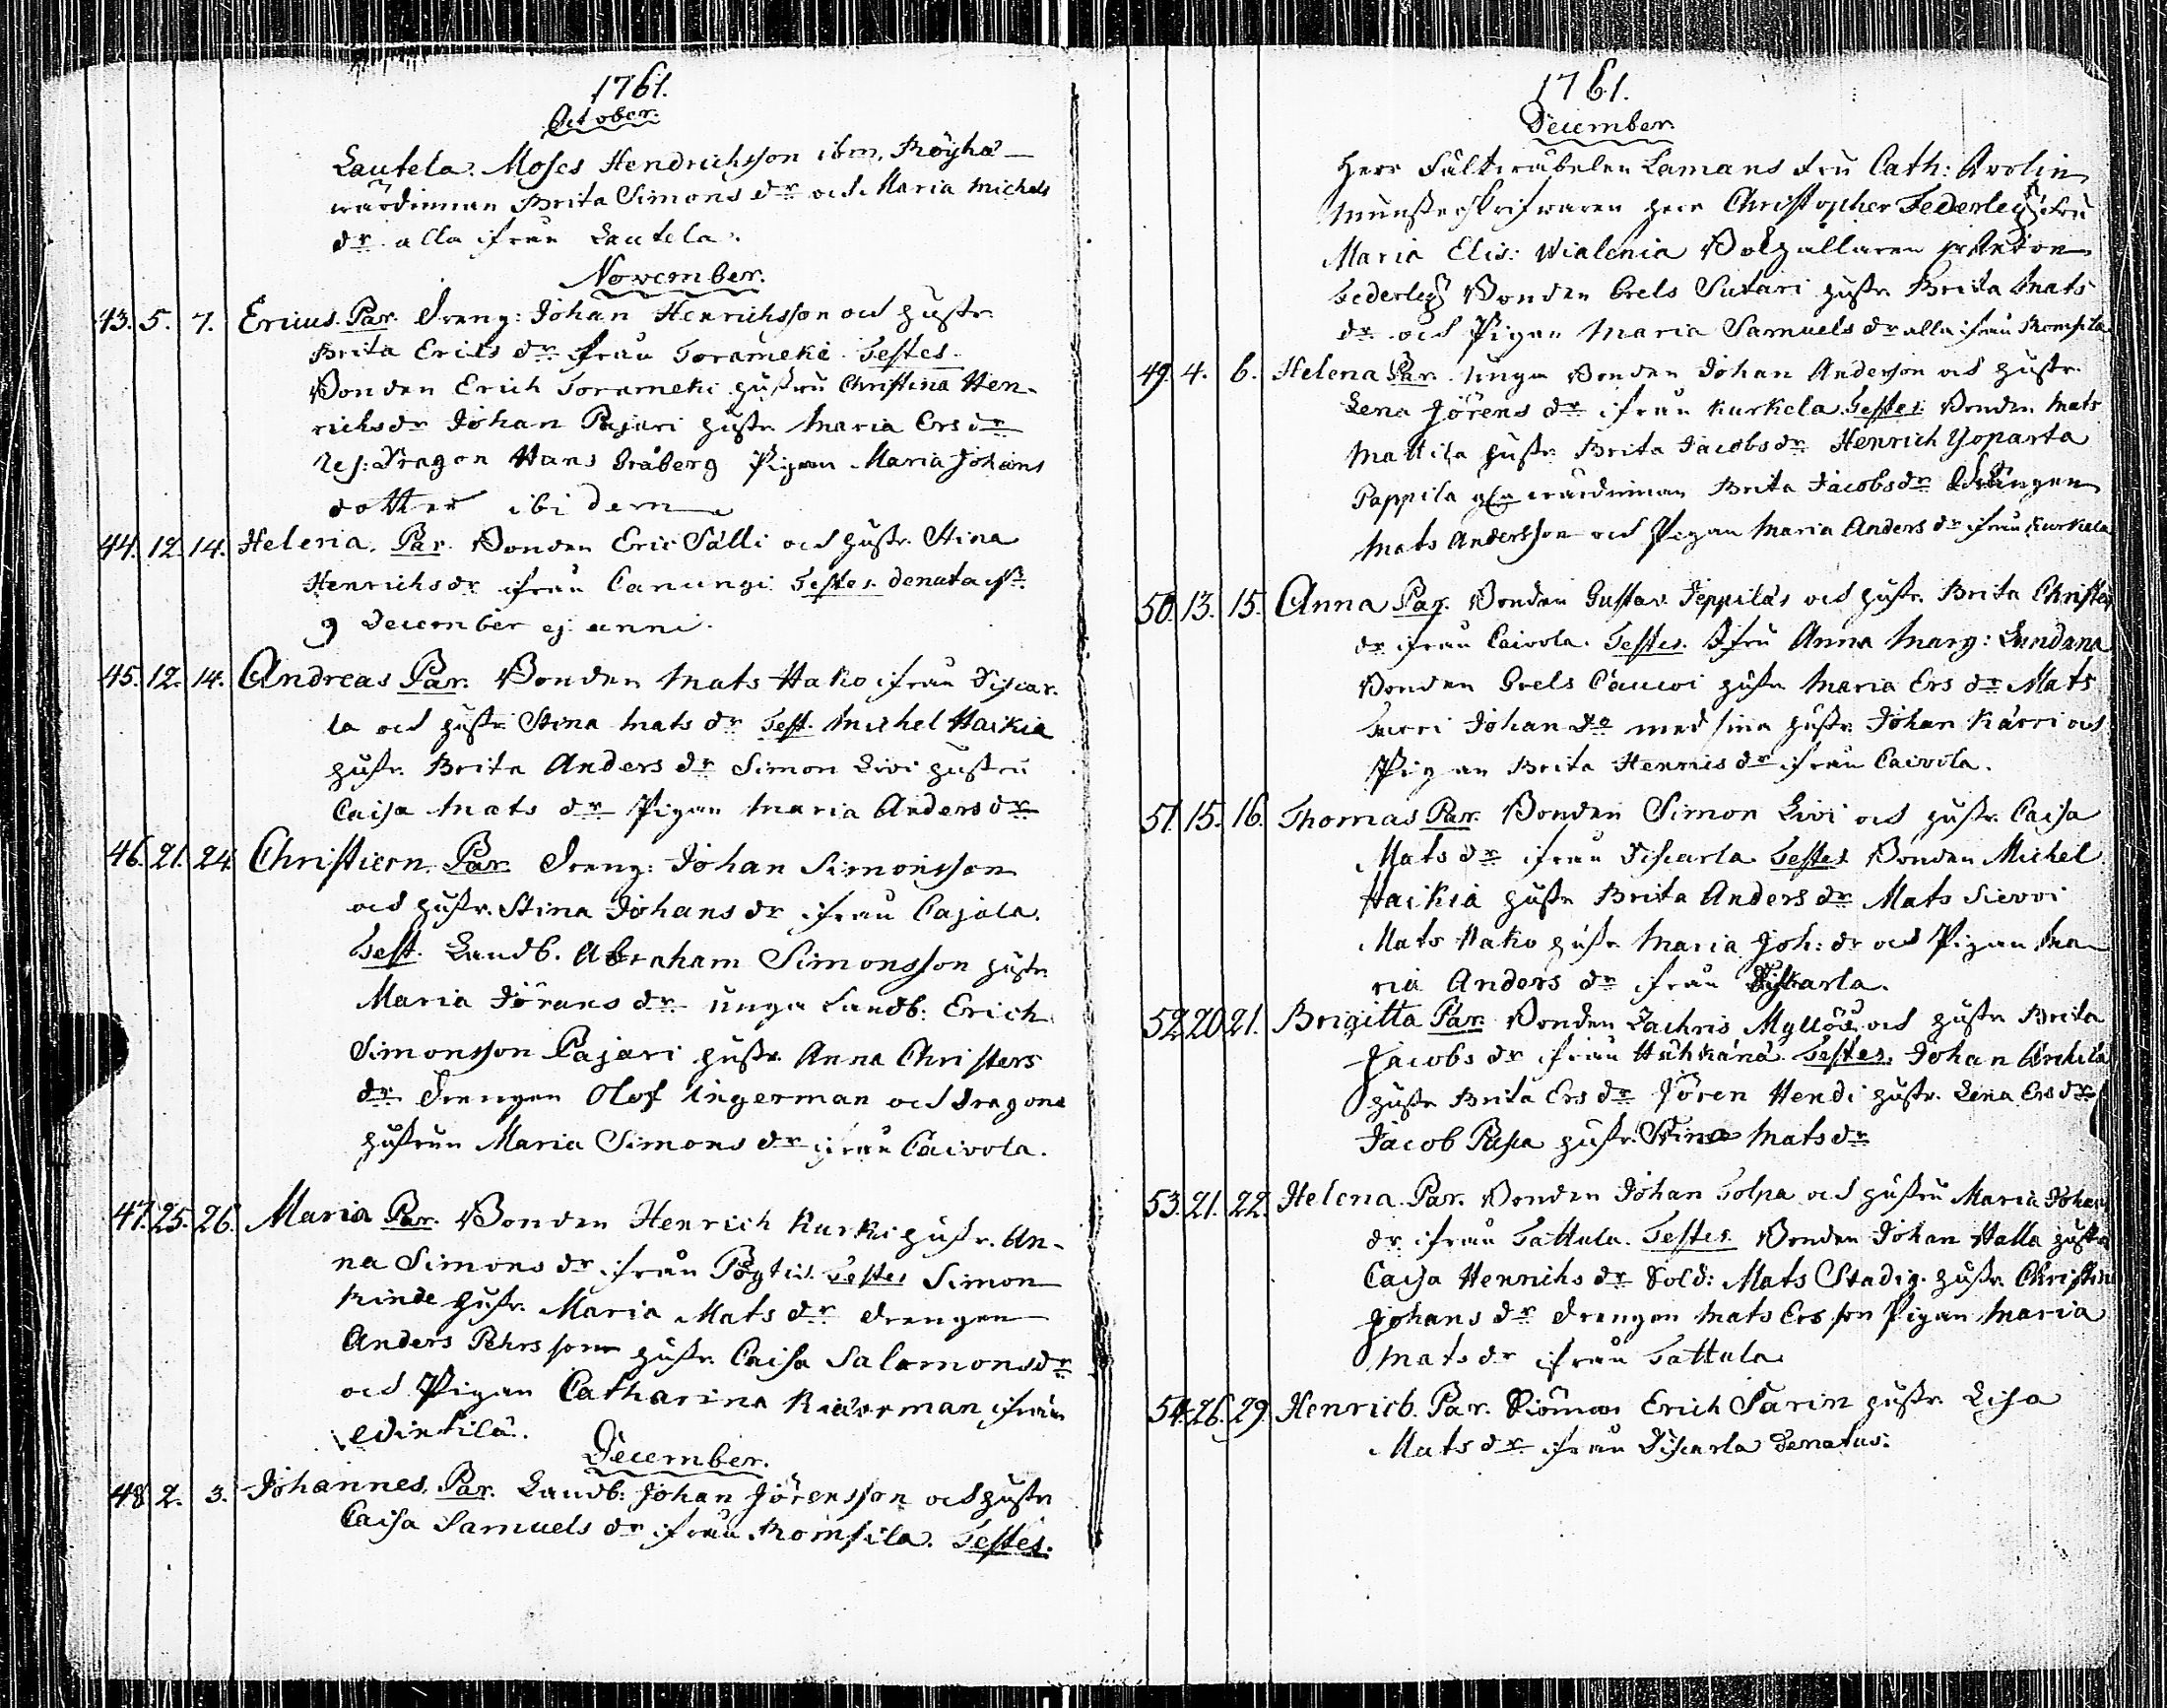 1761.
October.
Lautela. Moses Hendrichsson ibm, Röyhä
wärdinnan Brita Simons dr och Maria Michels
dr alla ifrån Lautela.
November.
43. 5. 7. Ericus. Par. Dreng: Johan Henrichsson och hustr.
Brita Erics dr ifrån Torameki. Testes.
Bonden Erich Torameki hustru Christina Hen-
richsdr Johan Pajari hustr. Maria Ers dr
Res: Dragon Hans Gråberg Pigan Maria Johans
dotter ibidem
44. 12. 14. Helena. Par. Bonden Eric Sälli och hustr. Stina
Henrichsdr ifrån Canungi Testes. denata est
9 December ej: anni.
45. 12. 14. Andreas Par. Bonden Mats Hako ifrån Discar-
la och hustr. Stina Mats dr Test. Michel Haikia
hustr. Brita Anders dr Simon Livi hustru
Caisa Mats dr Pigan Maria Anders dr
46. 21. 24 Christiern. Par. Dreng: Johan Simonsson
och hustr. Stina Johans dr ifrån Cajala.
Test. Landb. Abraham Simonsson hustr.
Maria Jörans dr unga Landb: Erich
Simonsson Pajari hustr. Anna Christers
dr. Drengen Olof Ingerman och Dragons
hustrun Maria Simons dr ifrån Caivola.
47. 25. 26. Maria Par. Bonden Henrich Kurki hustr. An-
na Simons dr ifrån Pöytis. Testes Simon
Kinde hustr. Maria Mats dr drengen
Anders Pehrsson hustr. Caisa Salomonsdr
och Pigan Catharina ifrån

December.
48 2. 3. Johannes. Par. Landb: Johan Jörensson och hustr
Caisa Samuels dr ifrån Romsila. Testes.
1761.
December.
Herr Fältwäbelen Lamans Fru Cath: Arolin
Munsterskrifwaren herr Christopher Federley Fru
Maria Elis: Wialenia Bokhållaren hr Anton
Federley Bonden Grels Sutari hustr. Brita Mats
dr och Pigan Maria Samuels dr alla ifrån Romsila
49. 4. 6. Helena Par. Unga Bonden Johan Anderson och hustr.
Lena Jörens dr ifrån Kurkela. Testes. Bonden Mats
Mattila hustr. Brita Jacobs dr Henrich Yoparta
Pappila wärdinnan Brita Jacobs dr Drängen
Mats Andersson och Pigan Maria Anders dr ifrån Kurkela
50. 13. 15. Anna Par. Bonden Gustav Jeppilä och hustr. Brita Christers
dr ifrån Caivola. Testes. Jfru Anna Marg: Lundana
Bonden Grels Caucoi hustr. Maria Ers dr Mats
Surri Johan do med sina hustr. Johan Kärri och
Pigan Brita Henrics dr ifrån Caivola.
51. 15. 16. Thomas Par. Bonden Simon Livi och hustr. Caisa
Mats dr ifrån Discarla Testes Bonden Michel
Haikia hustr Brita Anders dr Mats Sievoi
Mats Hako hustr. Maria Joh: dr och Pigan Ma
ria Anders dr ifrån Diskarla.
52. 20. 21. Brigitta Par. Bonden Zachris Myllöis och hustr Brita
Jacobs dr ifrån Huhkana. Testes. Johan Ankila
hustr Brita Ers dr Jören Hendi hustr. Lena Ers dr
Jacob Papa hustr. Stina Mats dr
53. 21. 22. Helena. Par. Bonden Johan Tolpa och hustru Maria Johans
dr ifrån Tattula. Testes. Bonden Johan Halla hustr
Caisa Henrichs dr Sold: Mats Stadig. hustr. Christina
Johans dr Drengen Mats Ersson Pigan Maria
Mats dr ifrån Tattula
54. 26. 29. Henrich. Par. Siöman Erich Sarin hustr. Lisa
Mats dr ifrån Discarla Denatus.